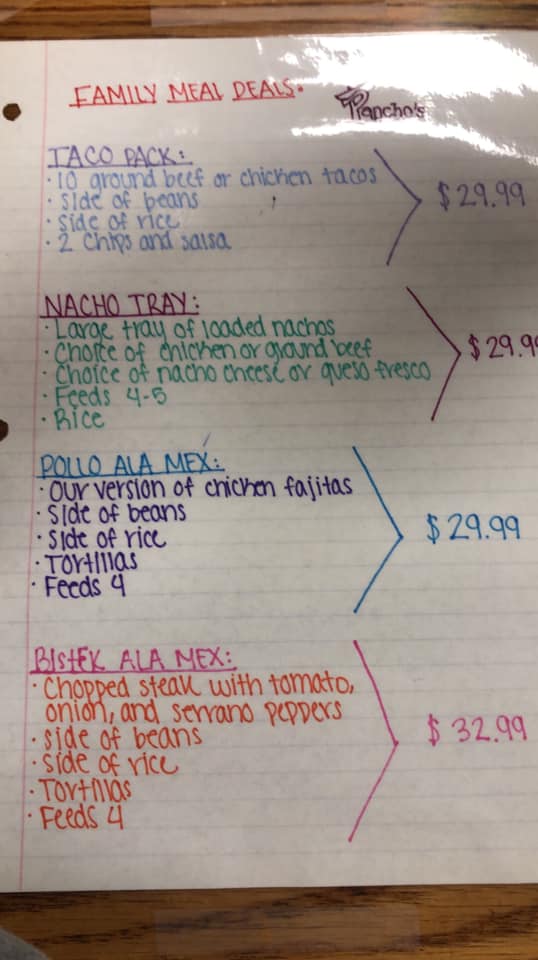 FAMILY MEAL DEALS:
Pancho's
TACO PACK:
· 10 ground beef or chicken tacos
· side of beans
· side of rice
· 2 Chips and salsa
$29.99
NACHO TRAY:
· Large tray of loaded nachos
· Choice of chicken or ground beef
· Choice of nacho cheese or queso fresco
· Feeds 4-5
· Rice
$29.99
POLLO ALA MEX:
· Our version of chicken fajitas
· Side of beans
· Side of rice
· Tortillas
· Feeds 4
$29.99
BISTEK ALA MEX:
· Chopped steak with tomato,
onion, and serrano peppers
· side of beans
· side of rice
· Tortillas
· Feeds 4
$32.99